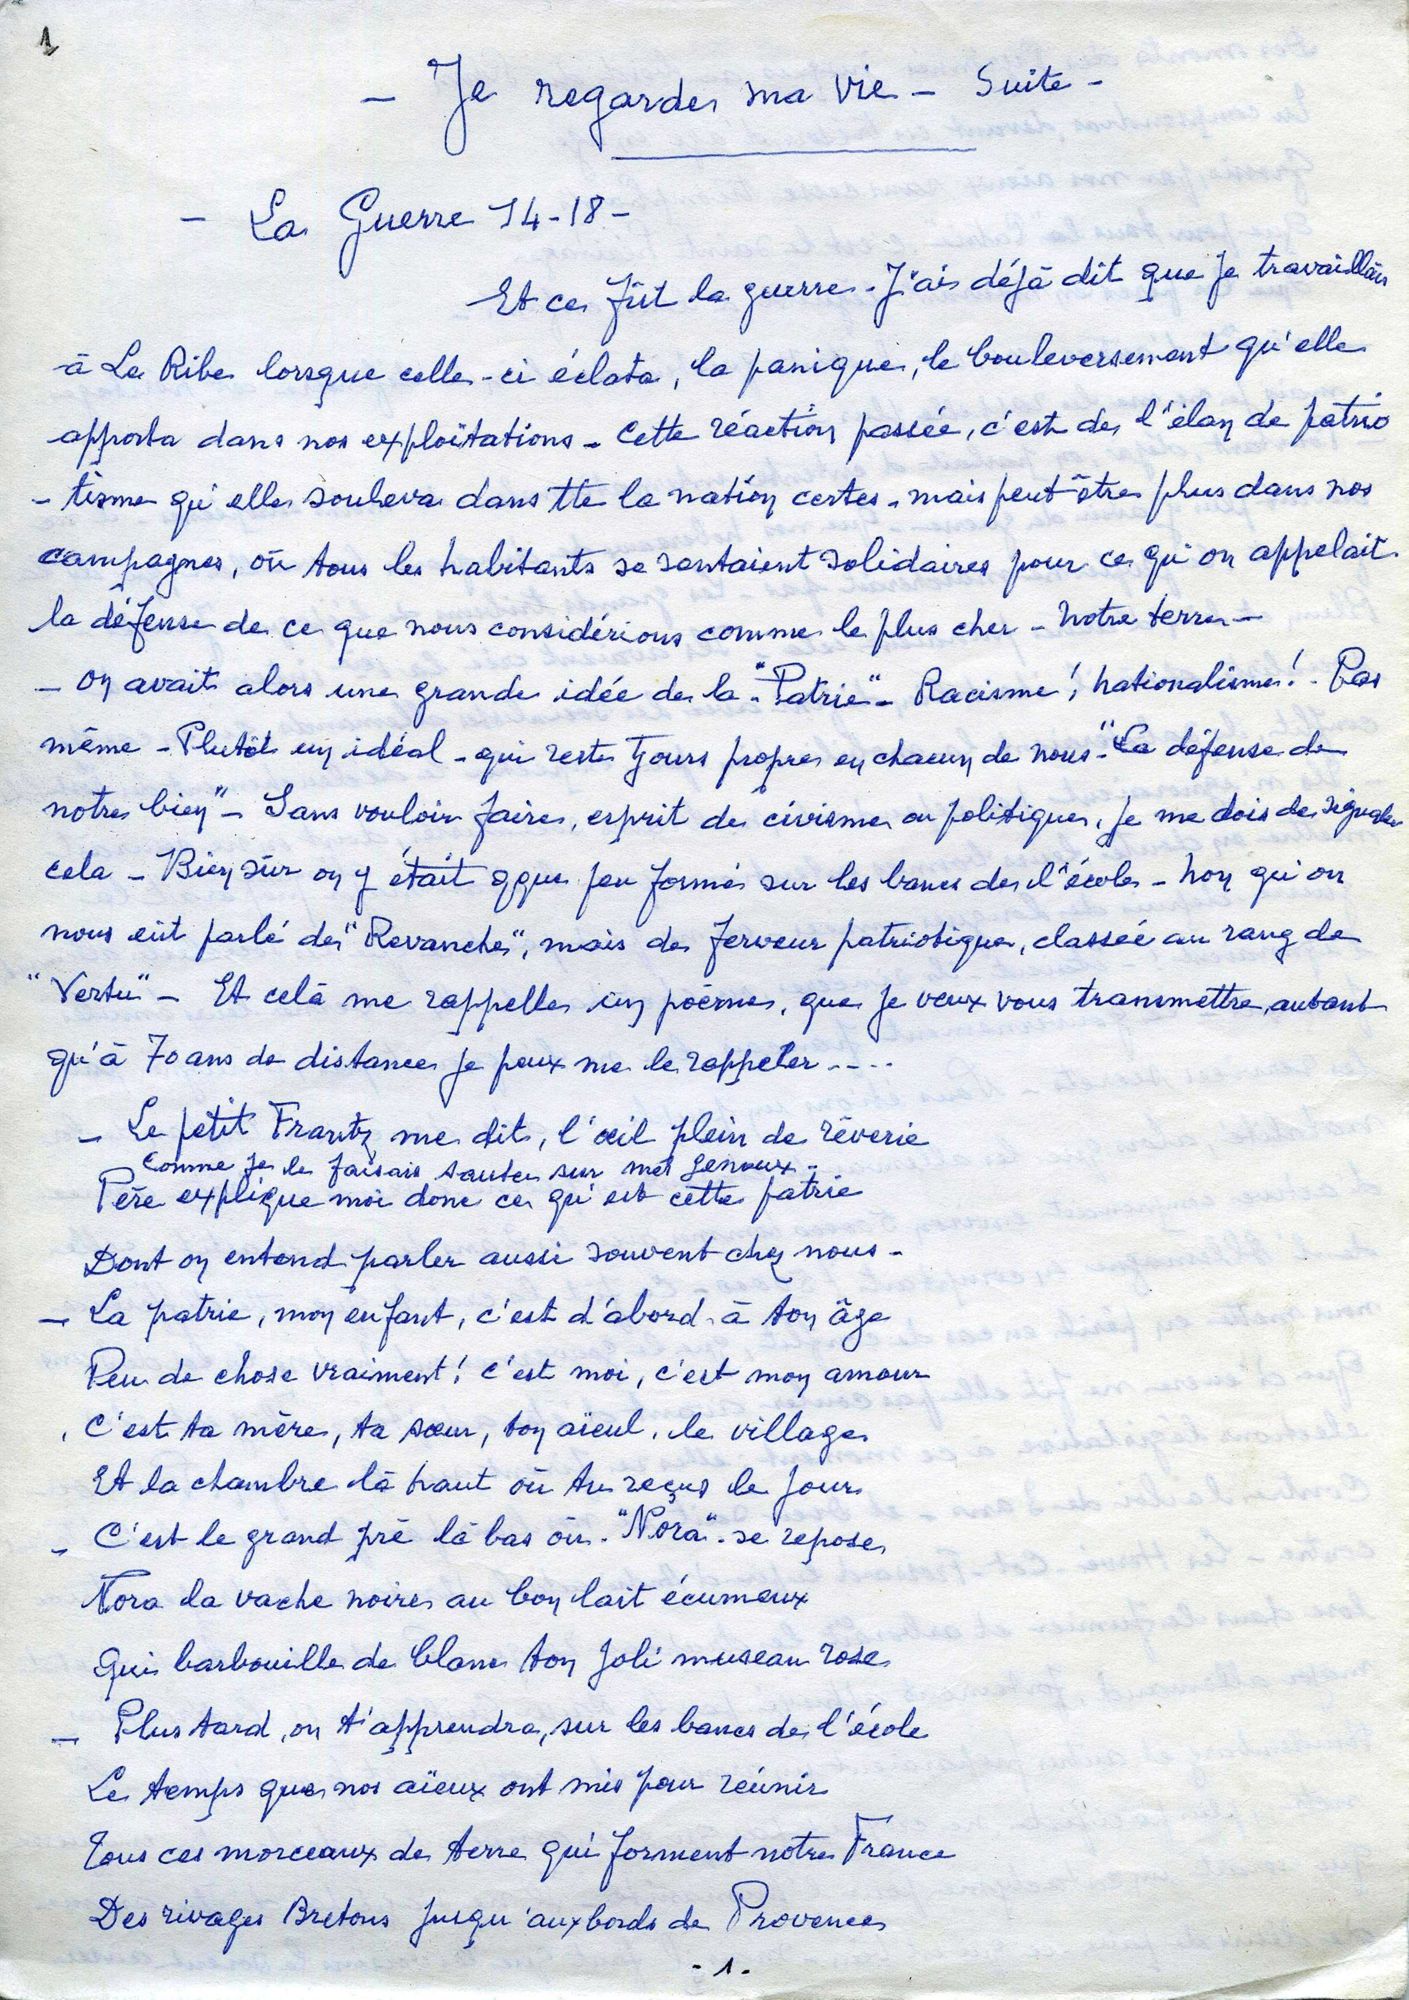 1
- Je regarde ma vie - Suite -
- La Guerre 14-18 -
Et ce fût la guerre - J'ai déjà dit que je travaillais
à La Ribe lorsque celle-ci éclata, la panique, le bouleversement qu'elle
apporta dans nos exploitations - Cette réaction passée, c'est de l'élan de patrio
- tisme qu'elle souleva dans tte la nation certes - mais peut être plus dans nos
campagnes, où tous les habitants se sentaient solidaires pour ce qu'on appelait
la défense de ce que nous considérions comme le plus cher - Notre terre -
- On avait alors une grande idée de la "Patrie" - Racisme! nationalisme! - Pas
même - Plutôt un idéal - qui reste tjours propre en chacun de nous - "La défense de
notre bien" - Sans vouloir faire, esprit de civisme ou politique, je me dois de signaler
cela - Bien sûr on y était qque peu formé sur les bancs de l'école - Non qu'on
nous eût parlé de "Revanche", mais de ferveur patriotique, classée au rang de
"Vertu" - Et celà me rappelle un poème, que je veux vous transmettre, autant
qu'à 70 ans de distance je peux me le rappeler ....
- Le petit Frantz me dit, l'œil plein de rêverie
Comme je le faisais sauter sur mes genoux -
Père explique moi donc ce qu'est cette patrie
Dont on entend parler aussi souvent chez nous -
- La patrie, mon enfant, c'est d'abord à ton âge
Peu de chose vraiment! c'est moi, c'est mon amour
C'est ta mère, ta sœur, ton aïeul, le village
Et la chambre là haut où tu reçus le jour
- C'est le grand pré là bas où "Nora" se repose
Nora la vache noire au bon lait écumeux
Qui barbouille de blanc ton joli museau rose
- Plus tard, on t'apprendra, sur les bancs de l'école
Le temps que nos aïeux ont mis pour réunir
Tous ces morceaux de terre qui forment notre France
Des rivages Bretons jusqu'aux bords de Provence
- 1 -